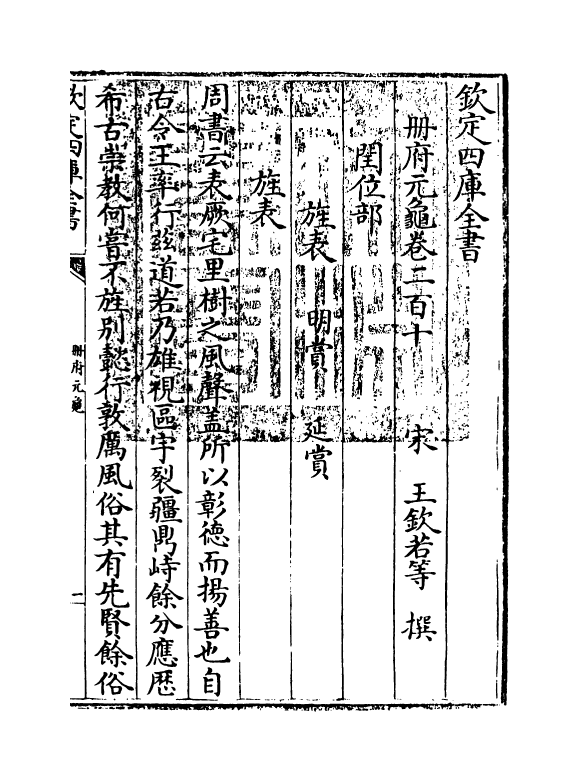 欽定四庫全書
冊府元龜卷二百十　宋　王欽若等　撰
閏位部
旌表　明賞　延賞
旌表
周書云表厥宅里樹之風聲蓋所以彰德而揚善也自
古令王率行兹道若乃雄視區宇裂疆鼎峙餘分應歷
希古崇教何嘗不旌別懿行敦厲風俗其有先賢餘俗
欽定四庫全書
冊府元龜